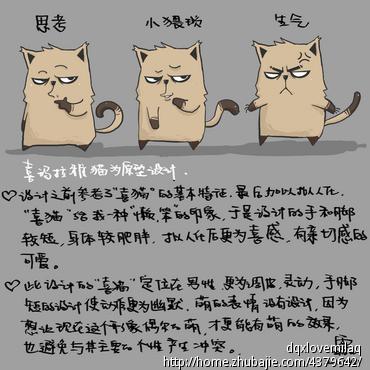 思考
小猥琐
生气
喜马拉雅猫为原型设计.
设计之前参考了"喜猫"的基本特征.最后加以拟人化.
"喜猫"给我一种"懒,笨"的印象,于是设计的手和脚
较短,身体较肥胖.拟人化后更为喜感,有亲切感的
可爱。
此设计的"喜猫"定位在男性,更为调皮,灵动,手脚
短的设计使动作更为幽默.萌的表情没有设计,因为
想让现在这个形象偶尔的萌,才更能有萌的效果,
也避免与其主要的个性产生冲突。
dqxlovemilaq
http://home.zhubajie.com/4379642/